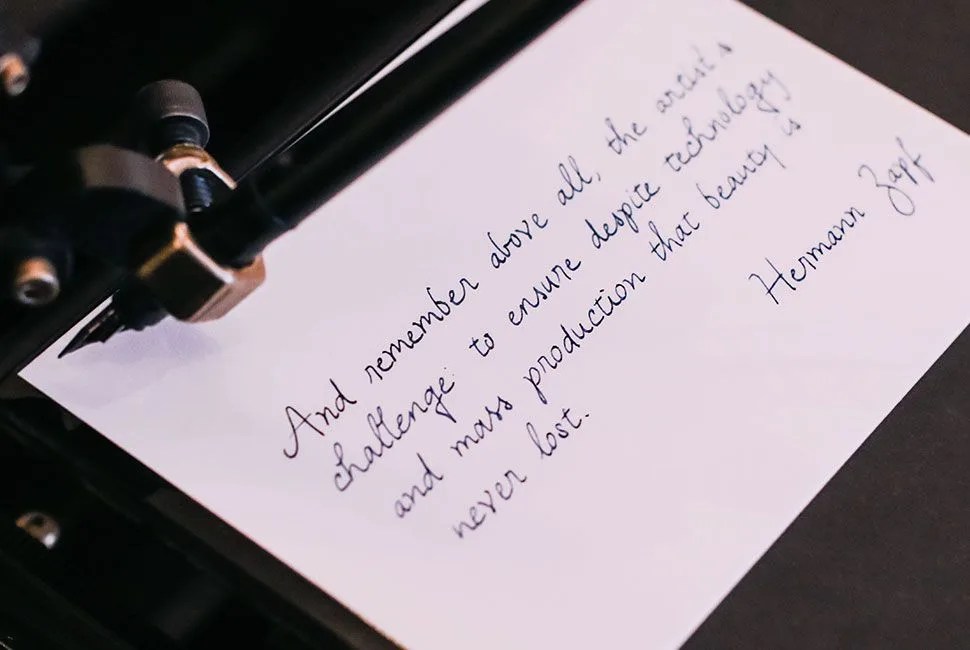 And remember above all, the artist's
challenge: to ensure despite technology
and mass production that beauty is
never lost.
Hermann Zapf